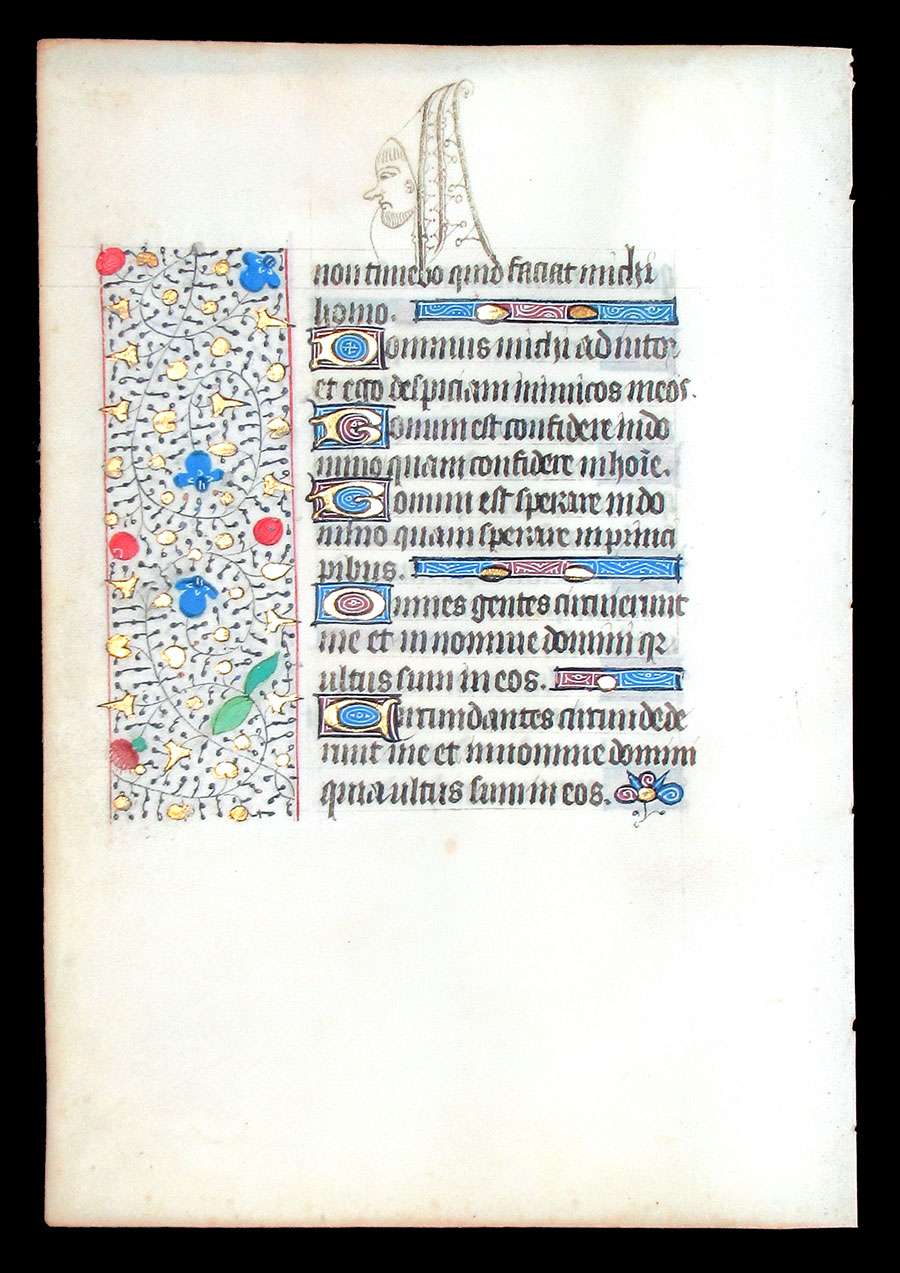 non timebo quid faciat michi
homo.
Dominus michi adiutor
et ego despiciam inimicos meos.
Bonum est confidere in do
mino quam confidere in hoīe.
Bonum est sperare in do
mino quam sperare in princi
pibus.
Omnes gentes circuierunt
me et in nomine domini qr
ultus sum in eos.
Circundantes circundede
runt me et in nomine domini
quia ultus sum in eos.